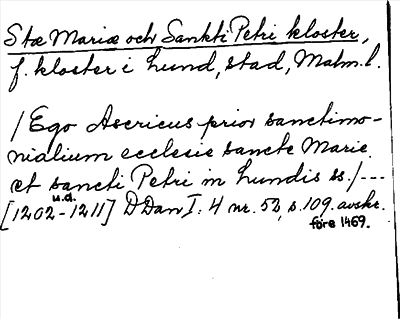 Stæ Mariæ och Sankti Petri kloster,
f. kloster i Lund, stad, Malm. l.
/ Ego Asericus prior sanctimo-
nialium ecclesie sancte Marie
et sancti Petri in Lundis ss. / ---
u.d.
[1202-1211] DDan I: 4 nr. 52, s. 109. avskr.
före 1469.